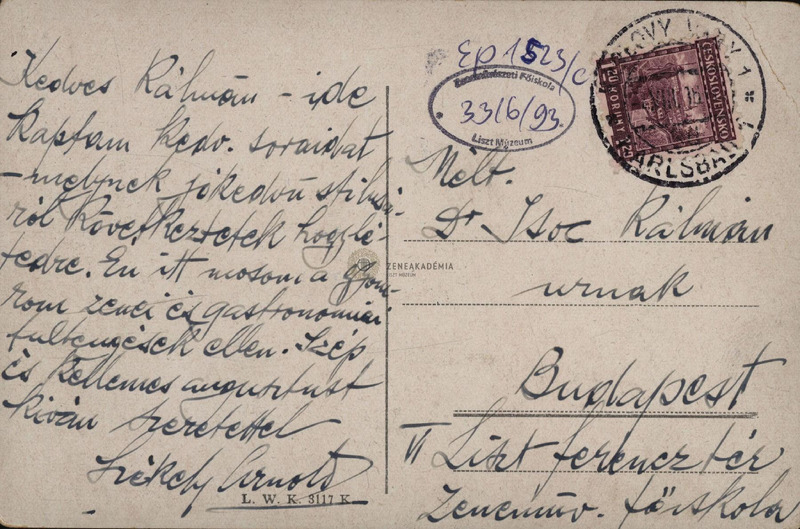 Kedves Kálmán - ide
kaptam kedv. soraidat
- melynek jókedvű stílusá-
ról következtetek hogylé-
tedre. Én itt mosom a gyom-
rom zenei és gastronomiai
túltengések ellen. Szép
és kellemes augusztust
kíván szeretettel
Székely Arnold
L. W. K. 3117 K
Ep 1523/c
Zeneművészeti Főiskola
33/6/93.
Liszt Múzeum
KARLOVY VARY 1
KARLSBAD 1
ČESKOSLOVENSKO
1.20 KORUNY 1.20
Mélt.
Dr Isoz Kálmán
urnak
ZENEAKADÉMIA
LISZT MÚZEUM
Budapest
VI Liszt Ferencz tér
Zeneműv. főiskola